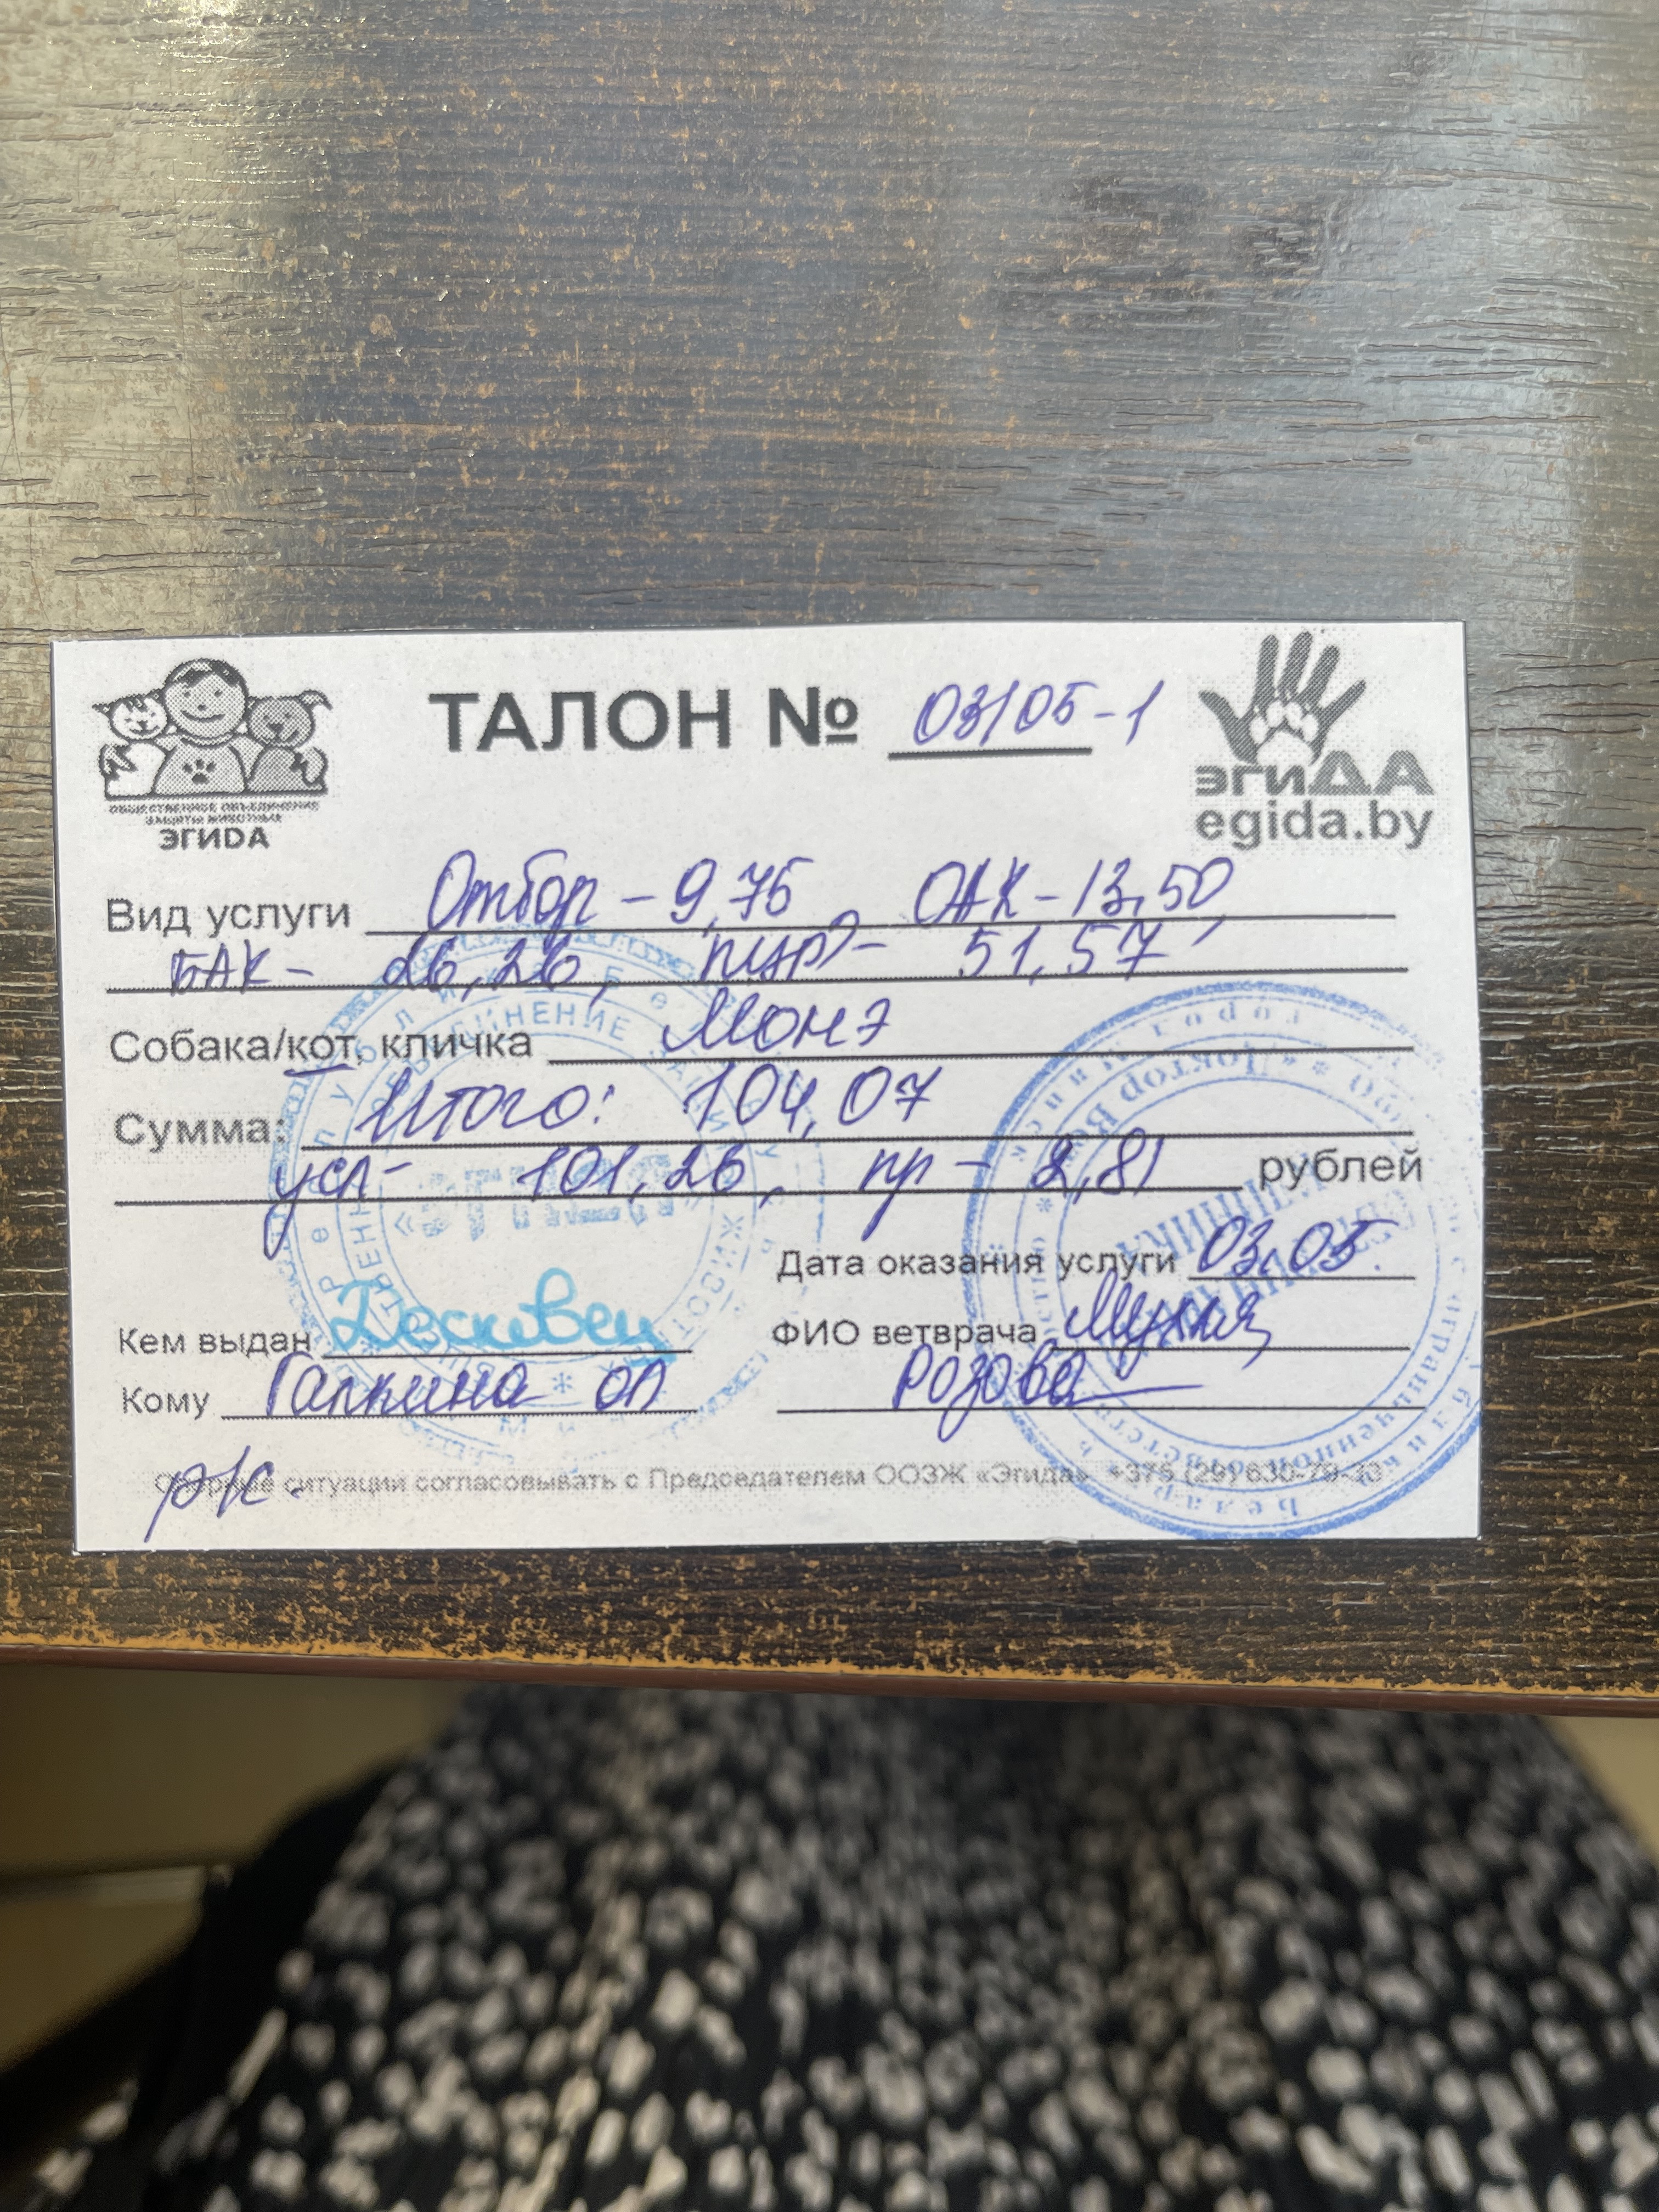 ТАЛОН № 03/05-1
ОБЩЕСТВЕННОЕ ОБЪЕДИНЕНИЕ
ЗАЩИТЫ ЖИВОТНЫХ
ЭГИDА
эгиДА
egida.by
Вид услуги Отбор - 9,75, ОАК - 13,50,
БАК - 26,26, пцр - 51,57
Собака/кот, кличка Монэ
Сумма: Итого: 104,07
усл - 101,26, пр - 2,81 рублей
Дата оказания услуги 03.05.
Кем выдан Десковец
ФИО ветврача
Кому Галкина ОЛ
Розова
рк.
ситуации согласовывать с Председателем ООЗЖ «Эгида» +375 (29) 630-79-33